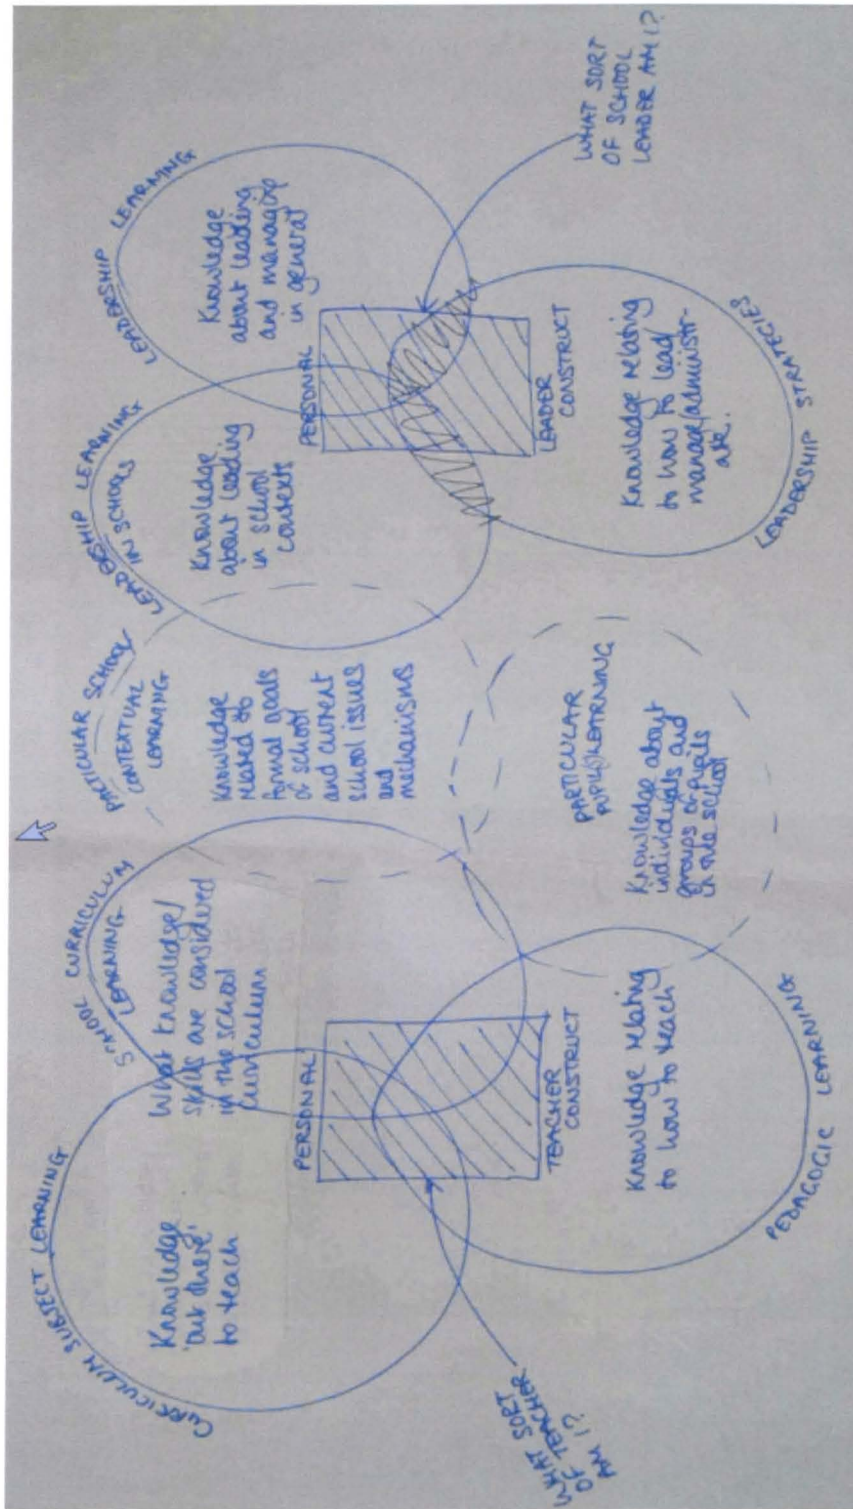 CURRICULUM SUBJECT LEARNING
Knowledge
'out there'
to teach
SCHOOL CURRICULUM
LEARNING
What knowledge/
skills are considered
in the school
curriculum
PERSONAL
TEACHER
CONSTRUCT
Knowledge relating
to how to teach
PEDAGOGIC LEARNING
WHAT SORT
OF TEACHER
AM I?
PARTICULAR SCHOOL
CONTEXTUAL
LEARNING
Knowledge
related to
formal goals
of school
and current
school issues
and
mechanisms
PARTICULAR
PUPIL(S) LEARNING
Knowledge about
individuals and
groups of pupils
in the school
LEADERSHIP LEARNING
IN SCHOOLS
Knowledge
about leading
in school
contexts
LEADERSHIP LEARNING
Knowledge
about leading
and managing
in general
PERSONAL
LEADER
CONSTRUCT
Knowledge relating
to how to lead
manage/administr-
ate.
LEADERSHIP STRATEGIES
WHAT SORT
OF SCHOOL
LEADER AM I?